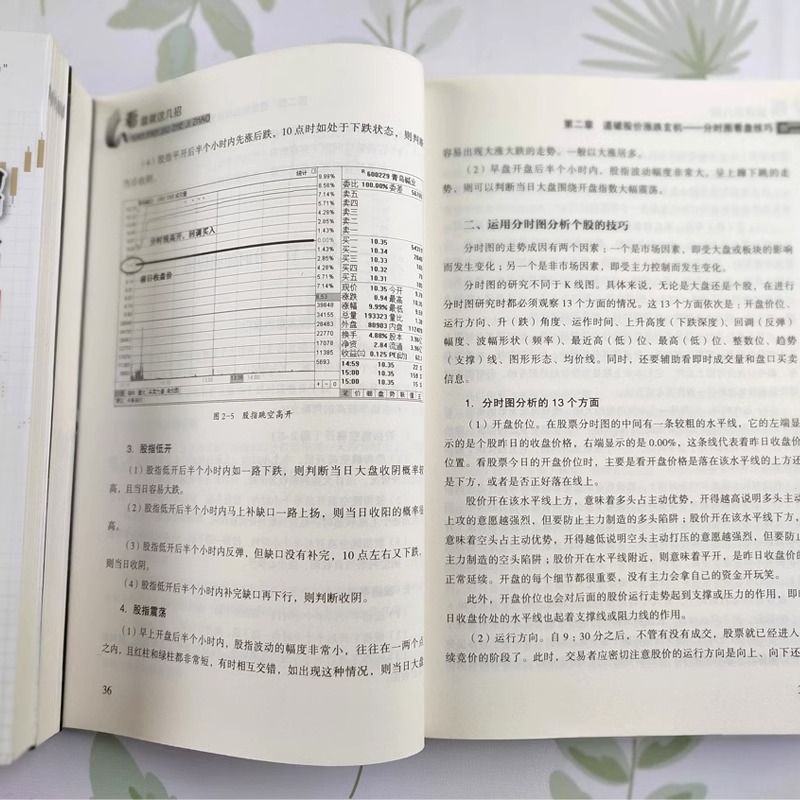 看
盘就这几招
KANPAN JIU ZHE JI ZHAO
(4)股指平开后半个小时内先涨后跌,10点时如处于下跌状态,则判断
当日收阴。
统计
9.99%
8.56%
7.14%
5.71%
4.28%
2.85%
1.43%
0.00%
1.43%
2.85%
4.28%
5.71%
7.14%
9.53
39848
34155
28463
22770
17078
11385
5693
分时线高开,回调买入
昨日收盘价
R 600229 青岛碱业
委比 100.00% 委差
卖五
卖四
卖三
卖二
卖一
买一 10.35
买二 10.34
买三 10.33
买四 10.32
买五 10.31
现价 10.35 今开
涨跌 0.94 最高
涨幅 9.99% 最低
总量 193323 量比
外盘 80903 内盘
换手 4.88% 股本
净资 2.84 流通
收益㈢ 0.125 PE(动)
14:59 10.35
15:00 10.35
15:00 10.35
笔 价 细 盘 势 联 值
图 2-5 股指跳空高开
3. 股指低开
(1)股指低开后半个小时内如一路下跌,则判断当日大盘收阴概率较
高,且当日容易大跌。
(2)股指低开后半个小时内马上补缺口一路上扬,则当日收阳的概率很
高。
(3)股指低开后半个小时内反弹,但缺口没有补完,10 点左右又下跌,
则当日收阴。
(4)股指低开后半个小时内补完缺口再下行,则判断收阴。
4. 股指震荡
(1)早上开盘后半个小时内,股指波动的幅度非常小,往往在一两个点
之内,且红柱和绿柱都非常短,有时相互交错,如出现这种情况,则当日大盘
36
第二章 道破股价涨跌玄机——分时图看盘技巧
容易出现大涨大跌的走势。一般以大涨居多。
(2)早盘开盘后半个小时内,股指波动幅度非常大,呈上蹿下跳的走
势,则可以判断当日大盘围绕开盘指数大幅震荡。
二、运用分时图分析个股的技巧
分时图的走势成因有两个因素:一个是市场因素,即受大盘或板块的影响
而发生变化;另一个是非市场因素,即受主力控制而发生变化。
分时图的研究不同于 K 线图。具体来说,无论是大盘还是个股,在进行
分时图研究时都必须观察 13 个方面的情况。这 13 个方面依次是:开盘价位、
运行方向、升(跌)角度、运作时间、上升高度(下跌深度)、回调(反弹)
幅度、波幅形状(频率)、最近高(低)位、最高(低)位、整数位、趋势
(支撑)线、图形形态、均价线。同时,还要辅助看即时成交量和盘口买卖
信息。
1. 分时图分析的 13 个方面
(1)开盘价位。在股票分时图的中间有一条较粗的水平线,它的左端显
示的是个股昨日的收盘价格,右端显示的是 0.00%,这条线代表着昨日收盘价
位置。看股票今日的开盘价位时,主要是看开盘价格是落在该水平线的上方还
是下方,或者是否正好落在线上。
股价开在该水平线上方,意味着多头占主动优势,开得越高说明多头主动
上攻的意愿越强烈,但要防止主力制造的多头陷阱;股价开在该水平线下方,
意味着空头占主动优势,开得越低说明空头主动打压的意愿越强烈,但要防止
主力制造的空头陷阱;股价开在水平线附近,则意味着平开,是昨日收盘价的
正常延续。开盘的每个细节都很重要,没有主力会拿自己的资金开玩笑。
此外,开盘价位也会对后面的股价运行走势起到支撑或压力的作用,即昨
日收盘价处的水平线也起着支撑线或阻力线的作用。
(2)运行方向。自 9:30 分之后,不管有没有成交,股票就已经进入
续竞价的阶段了。此时,交易者应密切注意股价的运行方向是向上、向下还